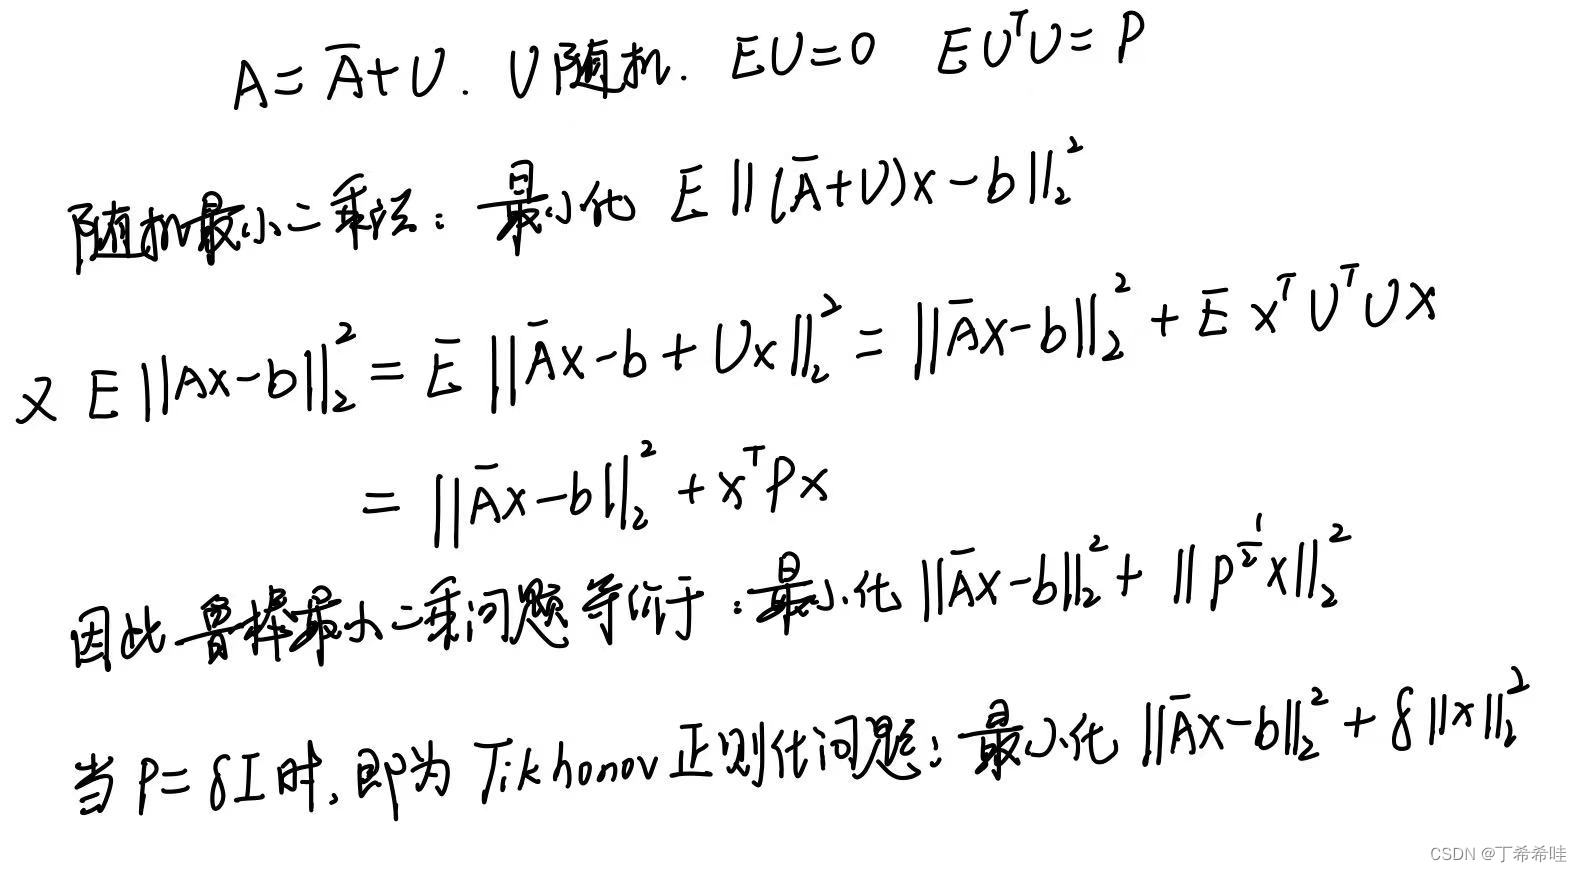 A = Ā + U. U随机. EU = 0 EUᵀU = P
随机最小二乘法：最小化 E ‖(Ā+U)x − b‖₂²
又 E‖Ax−b‖₂² = E ‖Āx−b + Ux‖₂² = ‖Āx−b‖₂² + E xᵀUᵀUx
= ‖Āx−b‖₂² + xᵀPx
因此鲁棒最小二乘问题等价于：最小化 ‖Āx−b‖₂² + ‖P^{1/2}x‖₂²
当 P = δI 时, 即为 Tikhonov 正则化问题：最小化 ‖Āx−b‖₂² + δ‖x‖₂²
CSDN @丁希希哇